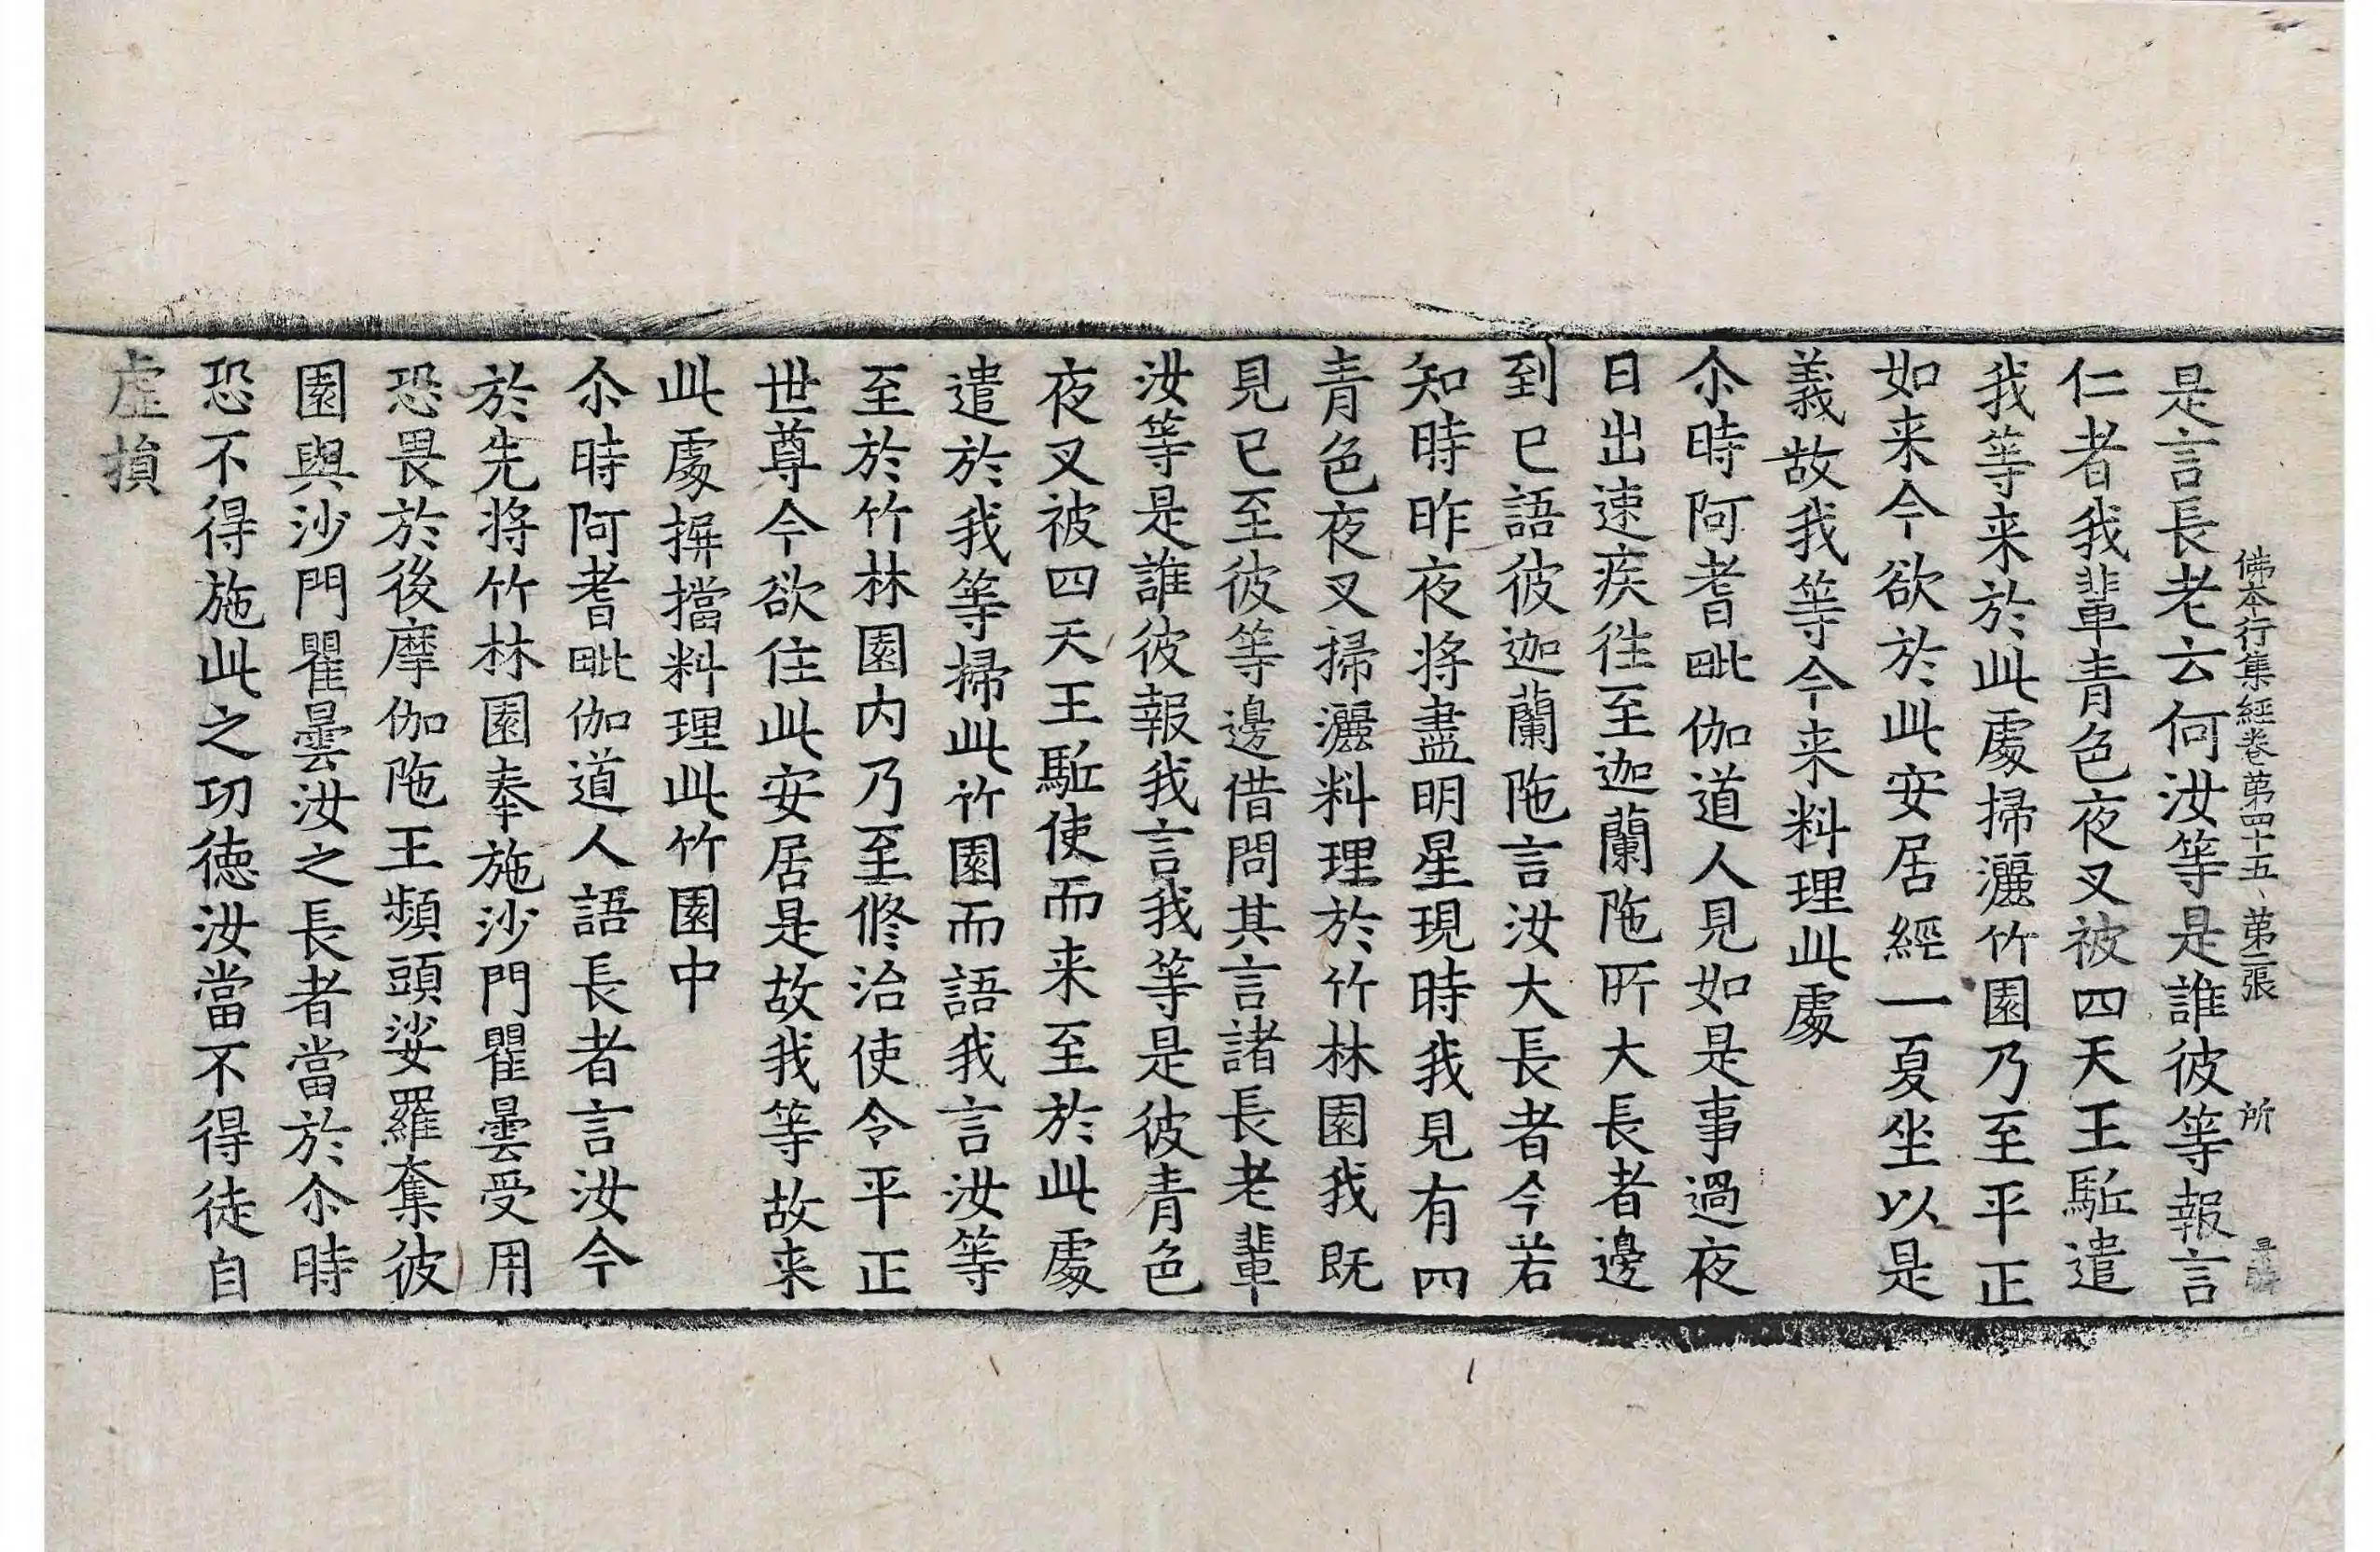 佛本行集經卷第四十五、第二張 所
是言長老云何汝等是誰彼等報言
仁者我輩青色夜叉被四天王駈遣
我等来於此處掃灑竹園乃至平正
如来今欲於此安居經一夏坐以是
義故我等今来料理此處
尒時阿耆毗伽道人見如是事過夜
日出速疾往至迦蘭陁所大長者邊
到已語彼迦蘭陁言汝大長者今若
知時昨夜将盡明星現時我見有四
青色夜叉掃灑料理於竹林園我既
見已至彼等邊借問其言諸長老輩
汝等是誰彼報我言我等是彼青色
夜叉被四天王駈使而来至於此處
遣於我等掃此竹園而語我言汝等
至於竹林園内乃至修治使令平正
世尊今欲住此安居是故我等故来
此處摒擋料理此竹園中
尒時阿耆毗伽道人語長者言汝今
於先将竹林園奉施沙門瞿曇受用
恐畏於後摩伽陁王頻頭娑羅奪彼
園與沙門瞿曇汝之長者當於尒時
恐不得施此之功德汝當不得徒自
虚損